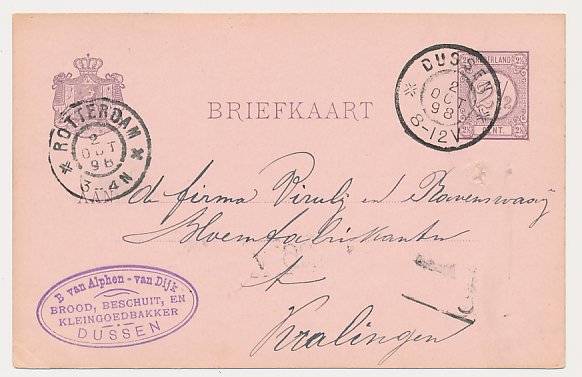 NEDERLAND
2½ 2½
CENT.
DUSSEN
2
OCT
98
8-12V
BRIEFKAART
ROTTERDAM
2
OCT
98
3-4N
AAN
de firma Viruly en Ravenswaay
Bloemfabrikanten
te
Kralingen
B van Alphen - van Dijk
BROOD, BESCHUIT, EN
KLEINGOEDBAKKER
DUSSEN